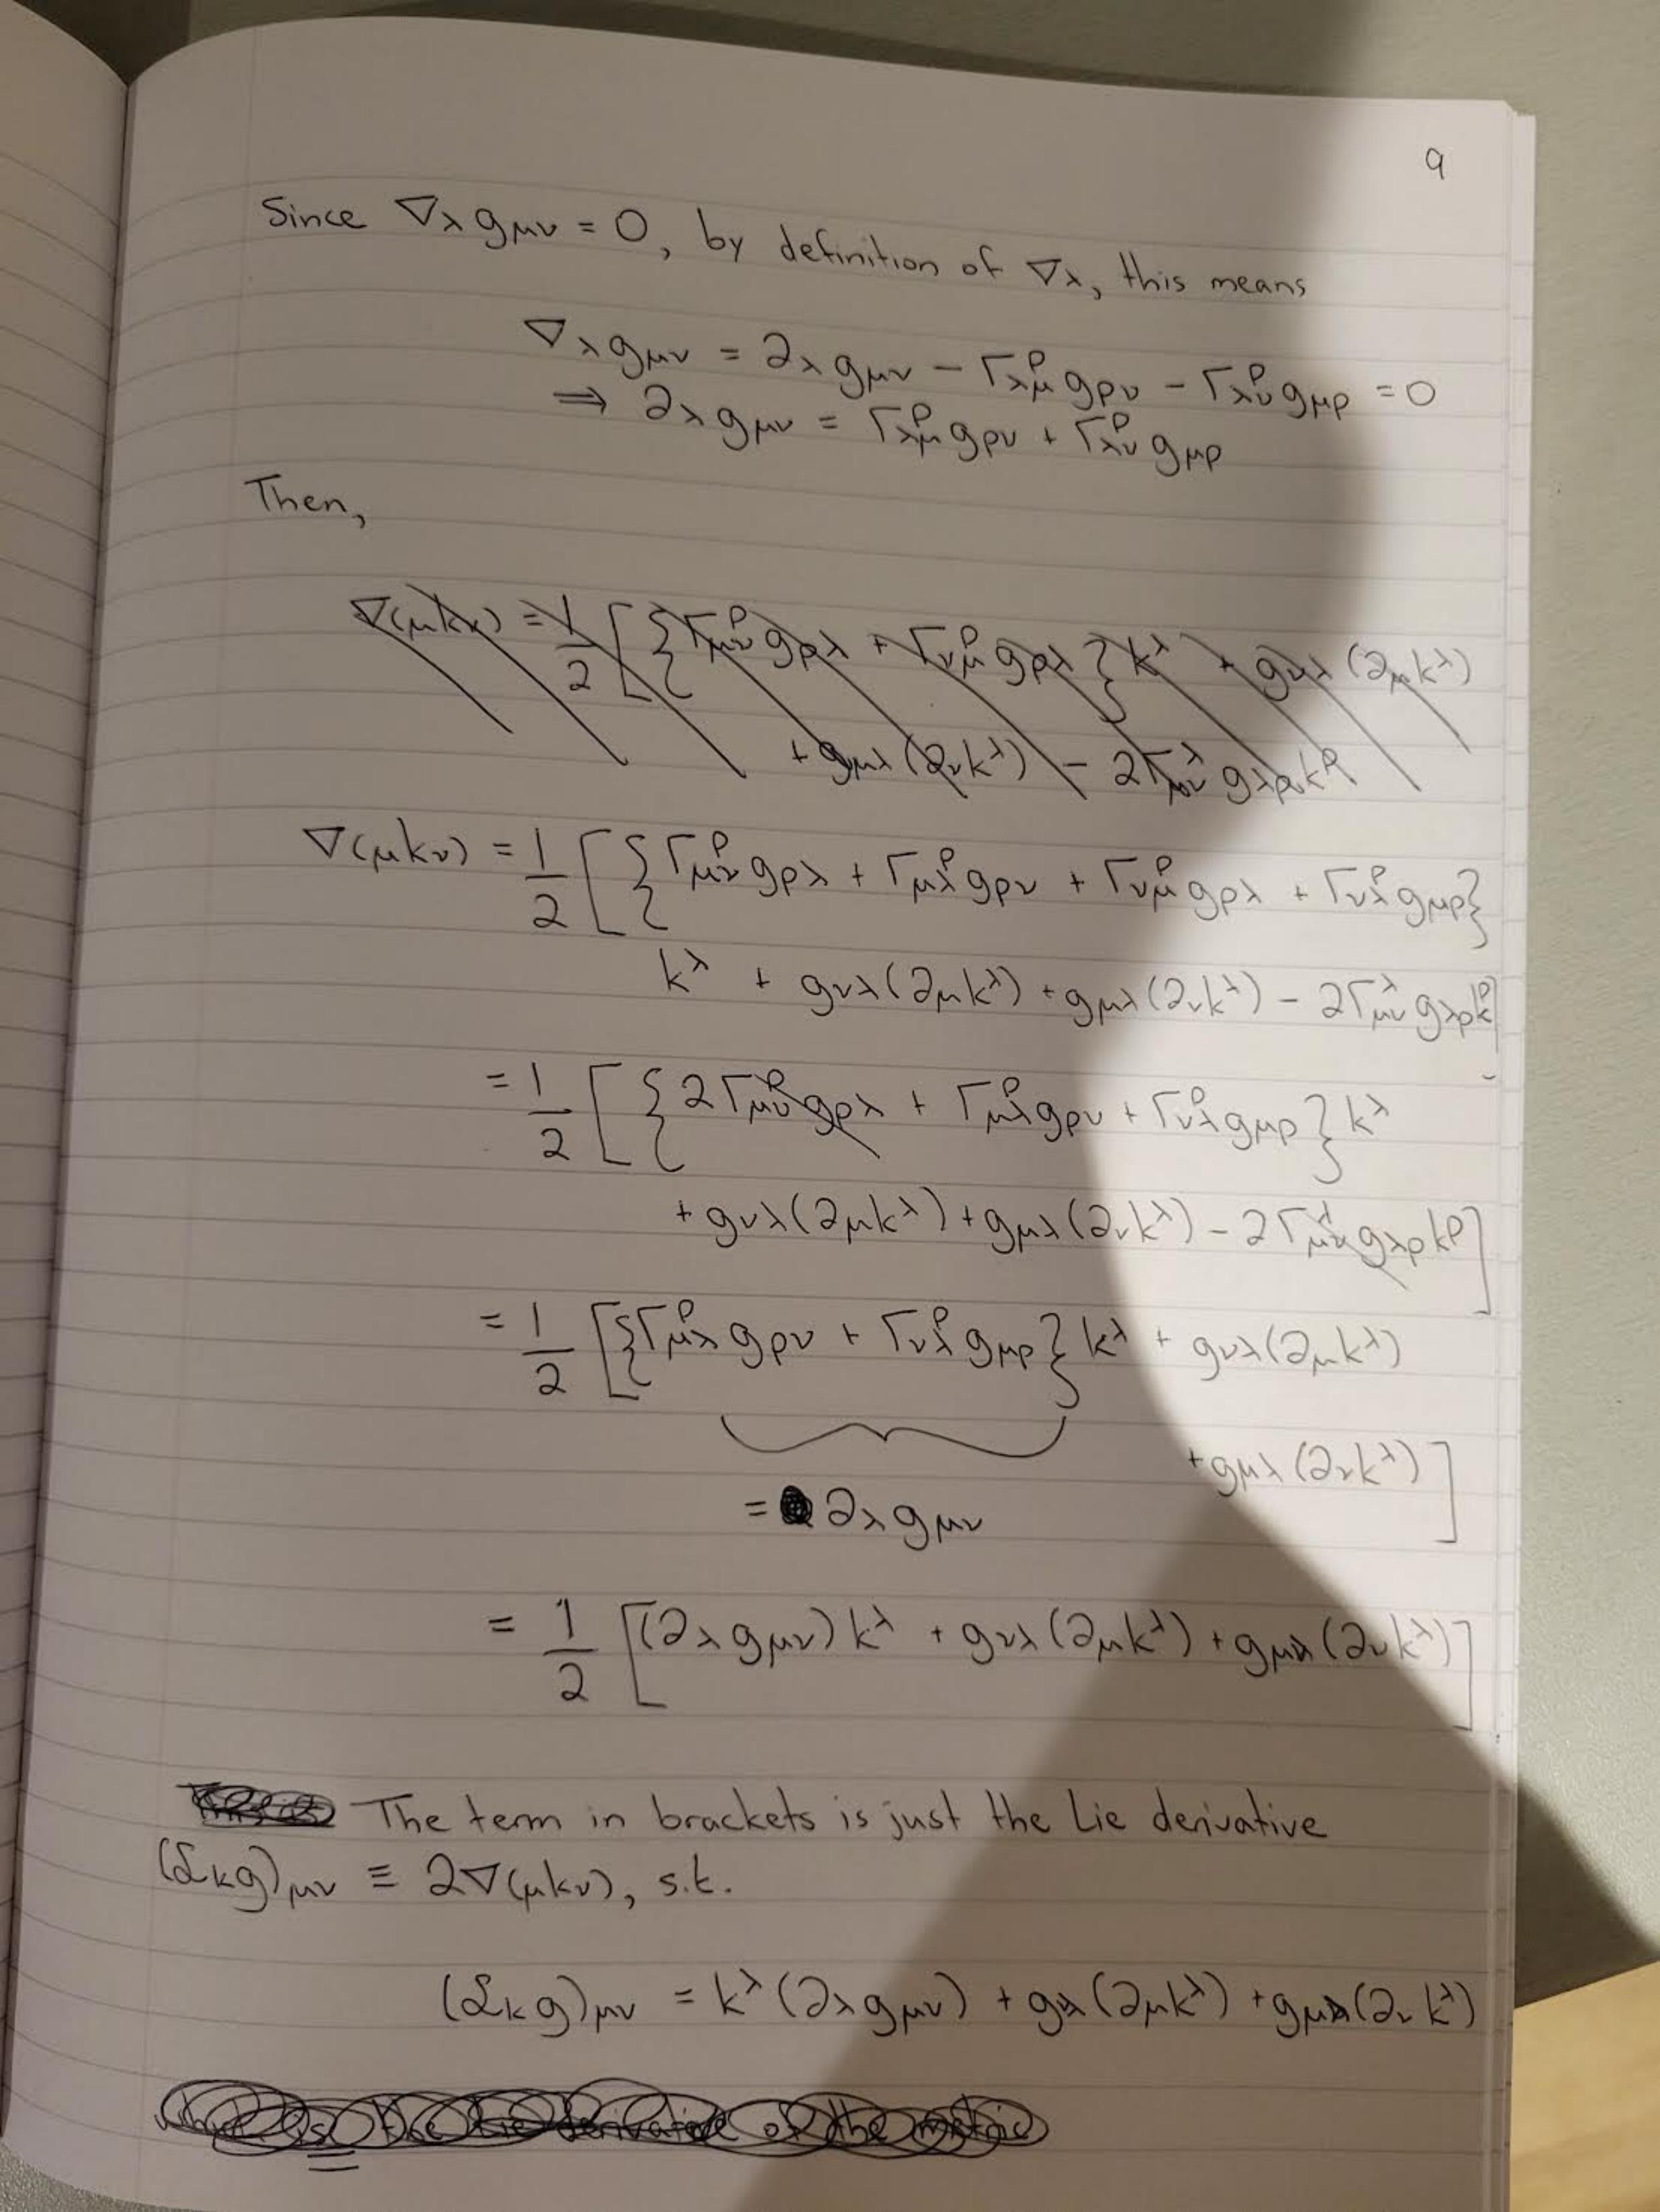 9
Since ∇_λ g_μν = 0, by definition of ∇_λ, this means
∇_λ g_μν = ∂_λ g_μν − Γ^ρ_λμ g_ρν − Γ^ρ_λν g_μρ = 0
⇒ ∂_λ g_μν = Γ^ρ_λμ g_ρν + Γ^ρ_λν g_μρ
Then,
∇_(μ k_ν) = 1/2 [ { Γ^ρ_μν g_ρλ + Γ^ρ_νμ g_ρλ } k^λ + g_νλ (∂_μ k^λ)
+ g_μλ (∂_ν k^λ) − 2Γ^λ_μν g_λρ k^ρ
∇_(μ k_ν) = 1/2 [ { Γ^ρ_μν g_ρλ + Γ^ρ_μλ g_ρν + Γ^ρ_νμ g_ρλ + Γ^ρ_νλ g_μρ }
k^λ + g_νλ (∂_μ k^λ) + g_μλ (∂_ν k^λ) − 2Γ^λ_μν g_λρ k^ρ ]
= 1/2 [ { 2Γ^ρ_μν g_ρλ + Γ^ρ_μλ g_ρν + Γ^ρ_νλ g_μρ } k^λ
+ g_νλ (∂_μ k^λ) + g_μλ (∂_ν k^λ) − 2Γ^λ_μν g_λρ k^ρ ]
= 1/2 [ { Γ^ρ_μλ g_ρν + Γ^ρ_νλ g_μρ } k^λ + g_νλ (∂_μ k^λ)
+ g_μλ (∂_ν k^λ) ]
= ∂_λ g_μν
= 1/2 [ (∂_λ g_μν) k^λ + g_νλ (∂_μ k^λ) + g_μλ (∂_ν k^λ) ]
The term in brackets is just the Lie derivative
(ℒ_k g)_μν ≡ 2∇_(μ k_ν), s.t.
(ℒ_k g)_μν = k^λ (∂_λ g_μν) + g_νλ (∂_μ k^λ) + g_μλ (∂_ν k^λ)
is the Lie derivative of the metric